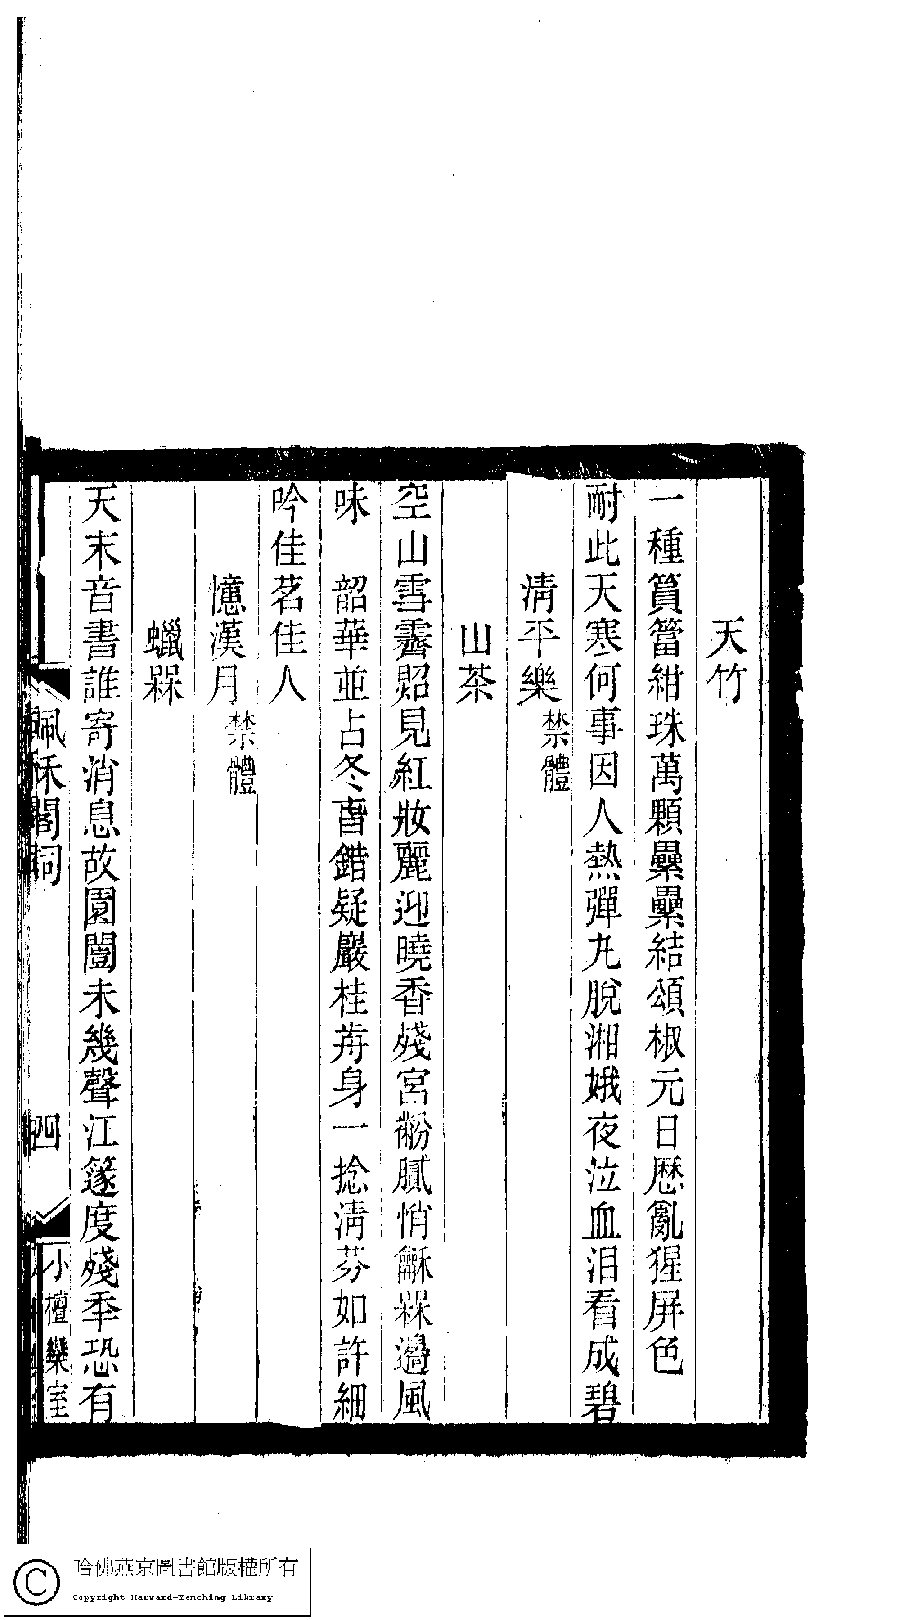 天竹
一種篔簹紺珠萬顆纍纍結頌椒元日歷亂猩屏色
耐此天寒何事因人熱彈丸脫湘娥夜泣血淚看成碧
清平樂禁體
山茶
空山雪霽照見紅妝麗迎曉香殘宮粉膩悄龢槑邊風
味　韶華並占冬春錯疑嚴桂歬身一捻清芬如許細
吟佳茗佳人
憶漢月禁體
蠟槑
天末音書誰寄消息故園闓未幾聲江篴度殘秊恐有
佩秋閣詞
四
小檀欒室
哈佛燕京圖書館版權所有
Copyright Harvard-Yenching Library